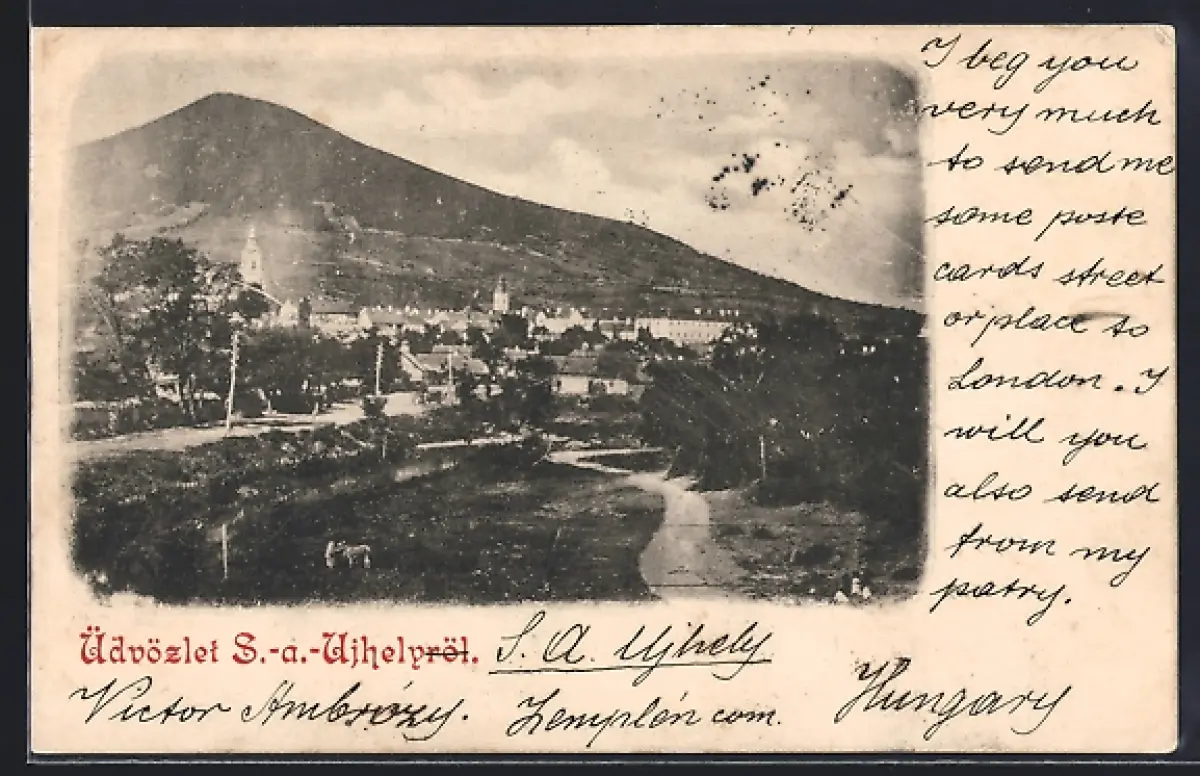 I beg you
very much
to send me
some poste
cards street
or place to
London. I
will you
also send
from my
patry.
Üdvözlet S.-a.-Ujhelyről. S. A. Ujhely
Victor Ambrózy. Zemplén com. Hungary